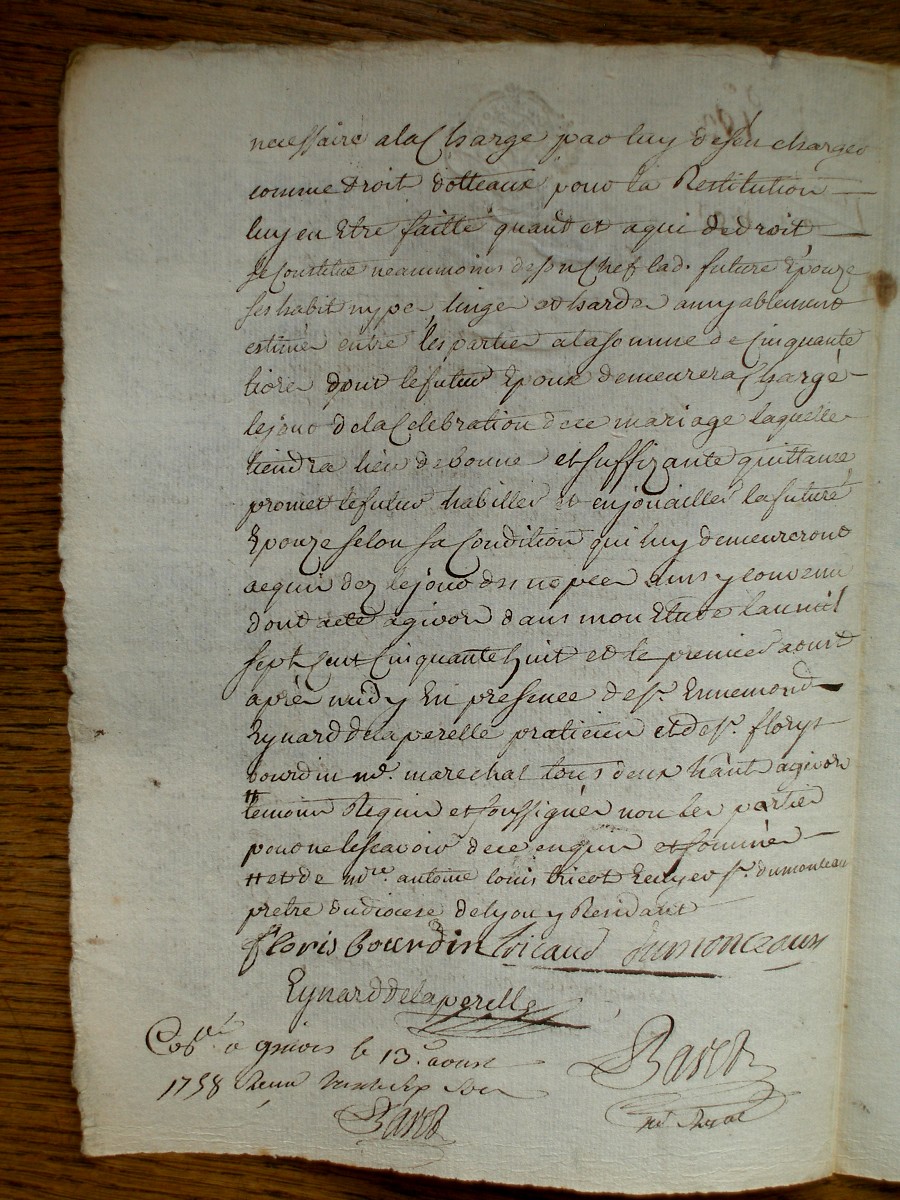 necessaire a la Charge par luy de sen charger
comme droit dotteaux pour la Restitution
luy en Etre faitte quand et a qui de droit
se Constitue neammoins de son Chef lad. future Epouze
ses habit nype, linge et hardes amyablement
estimés entre les parties a la somme de Cinquante
livres dont le futur Epoux demeurera Chargé
le jour de la Celebration de ce mariage laquelle
tiendra lieu de bonne et suffizante quittance
promet le futur habiller et enjouailler la future
Epouze selon sa Condition qui luy demeureront
acquis dez le jour des nopces ainsy Convenu
dont acte a givors dans mon Etude lan mil
sept Cent Cinquante huit et le premier aoust
après midy En presence de sr. Ennemond
Eynard delaperelle praticien et de sr. florys
bourdin md. marechal tous deux hant a givors
temoins Requis et soussignés non les parties
pour ne le scavoir de ce enquis et sommés
et de mre. antoine louis tricot Ecuyer sr. dumonceau
pretre du diocese de lyon y Residant
floris bourdin tricaud dumonceaux
Eynard delaperelle
a givors le 13e. aoust
1758
Bared
Bared
nre. Royal